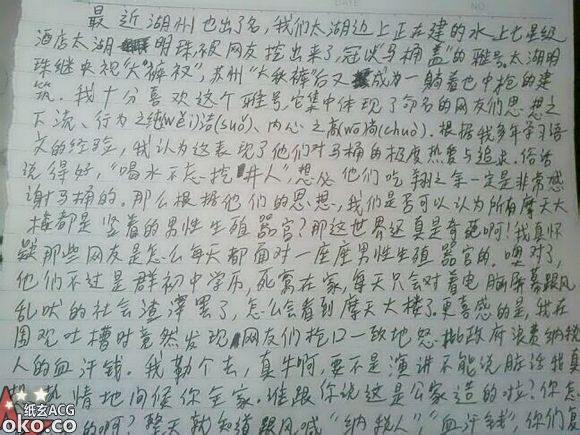 最近湖州也出了名,我们太湖边上正在建的水上七星级
酒店太湖明珠被网友挖出来了,冠以“马桶盖”的雅号。太湖明
珠继央视“大裤衩”,苏州“大秋裤”后又成为一躺着也中枪的建
筑。我十分喜欢这个雅号。它集中体现了命名的网友们思想之
下流、行为之猥(wěi)洁(suǒ)、内心之高(wo)尚(chuo).根据我多年学习语
文的经验,我认为这表现了他们对马桶的极度热爱与追求。俗话
说得好,“喝水不忘挖井人”,想必他们吃翔之余一定是非常感
谢马桶的。那么根据他们的思想,我们是否可以认为所有摩天大
楼都是竖着的男性生殖器官?那这世界还真是奇葩啊!我真怀
疑那些网友是怎么每天都面对一座座男性生殖器官的。噢对了,
他们不过是群初中学历,死窝在家,每天只会对着电脑屏幕跟风
乱吠的社会渣滓罢了,怎么会看到摩天大楼了。更喜感的是,我在
围观吐槽时竟然发现网友们枪口一致地怒批政府浪费纳税
人的血汗钱。我勒个去,真牛啊,要不是演讲不能说脏话我真
想热情地问候你全家。谁跟你说这是公家造的啦?你怎
的啊?整天就知道跟风喊“纳税人”“血汗钱”,你们复
纸玄ACG
oko.co